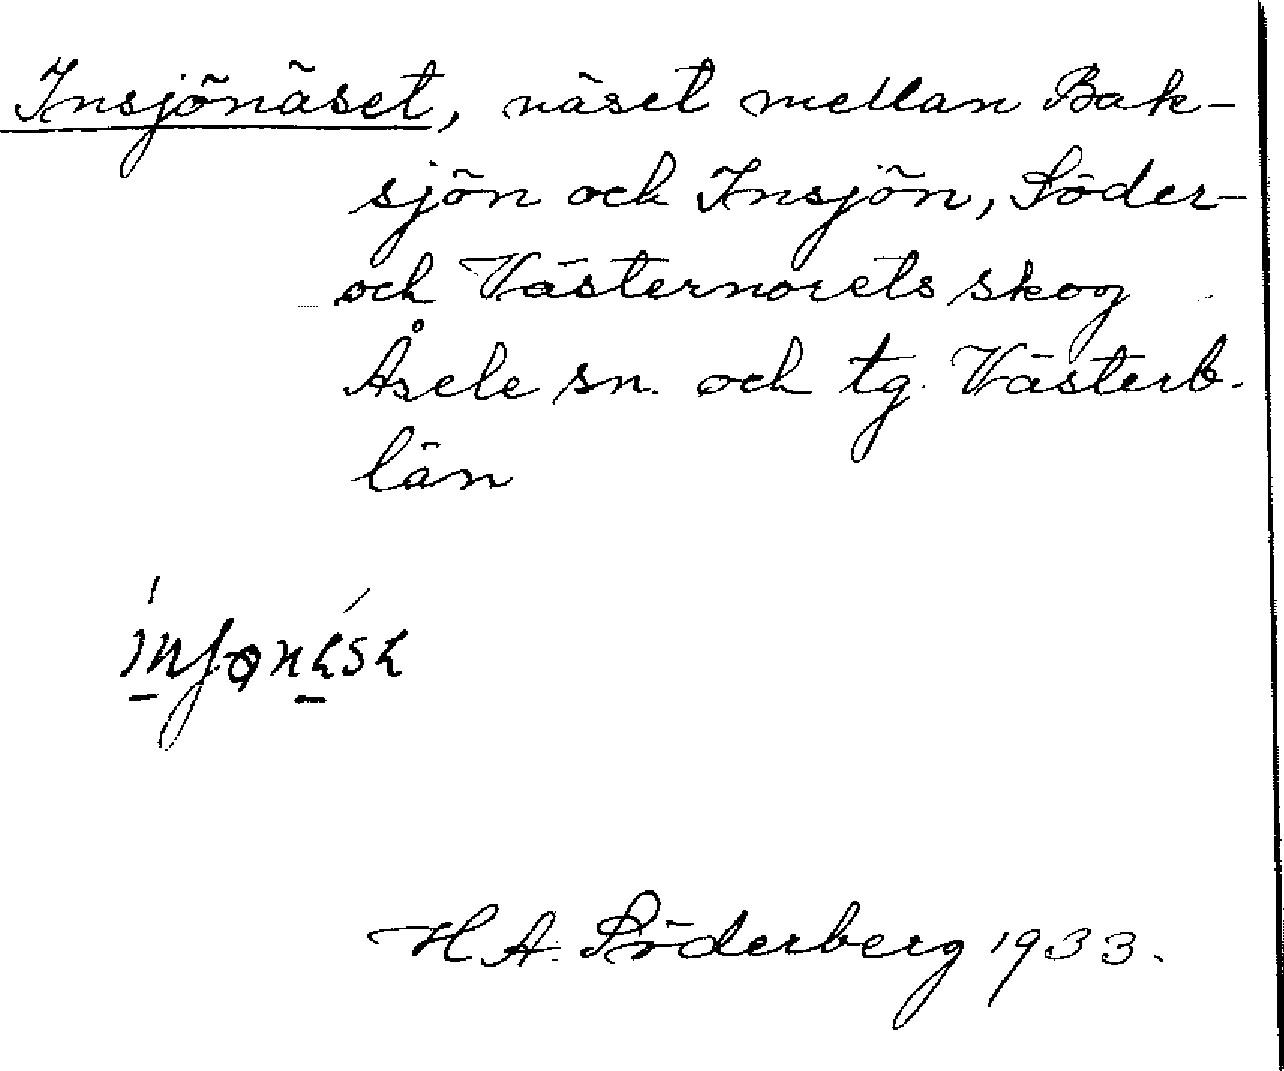 Insjönäset, näset mellan Bak-
sjön och Insjön, Söder-
och Västernorets skog
Åsele sn. och tg. Västerb.
län
H. A. Söderberg 1933.